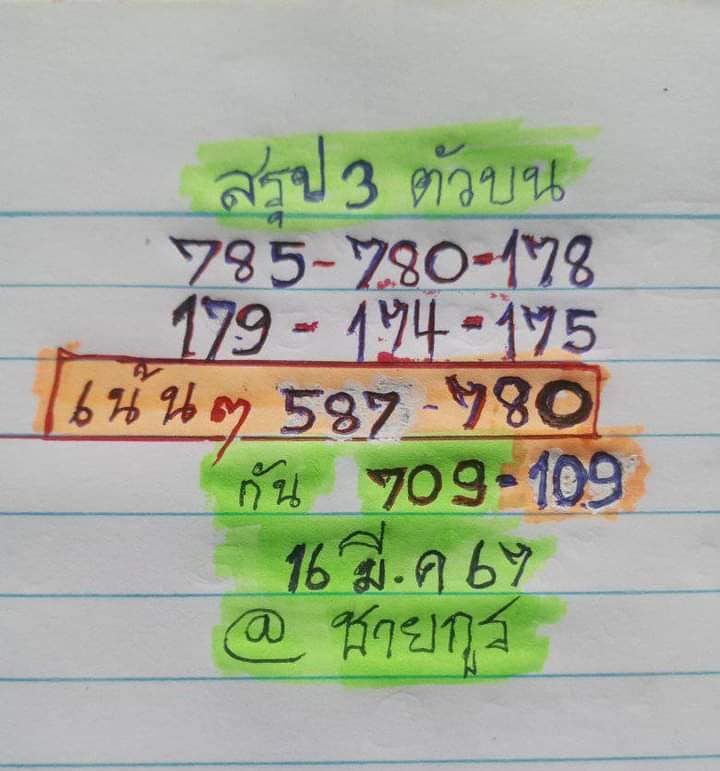 สรุป 3 ตัวบน
785-780-178
179-174-175
เน้นๆ 587-780
กัน 709-109
16 มี.ค 67
@ ชายกูร